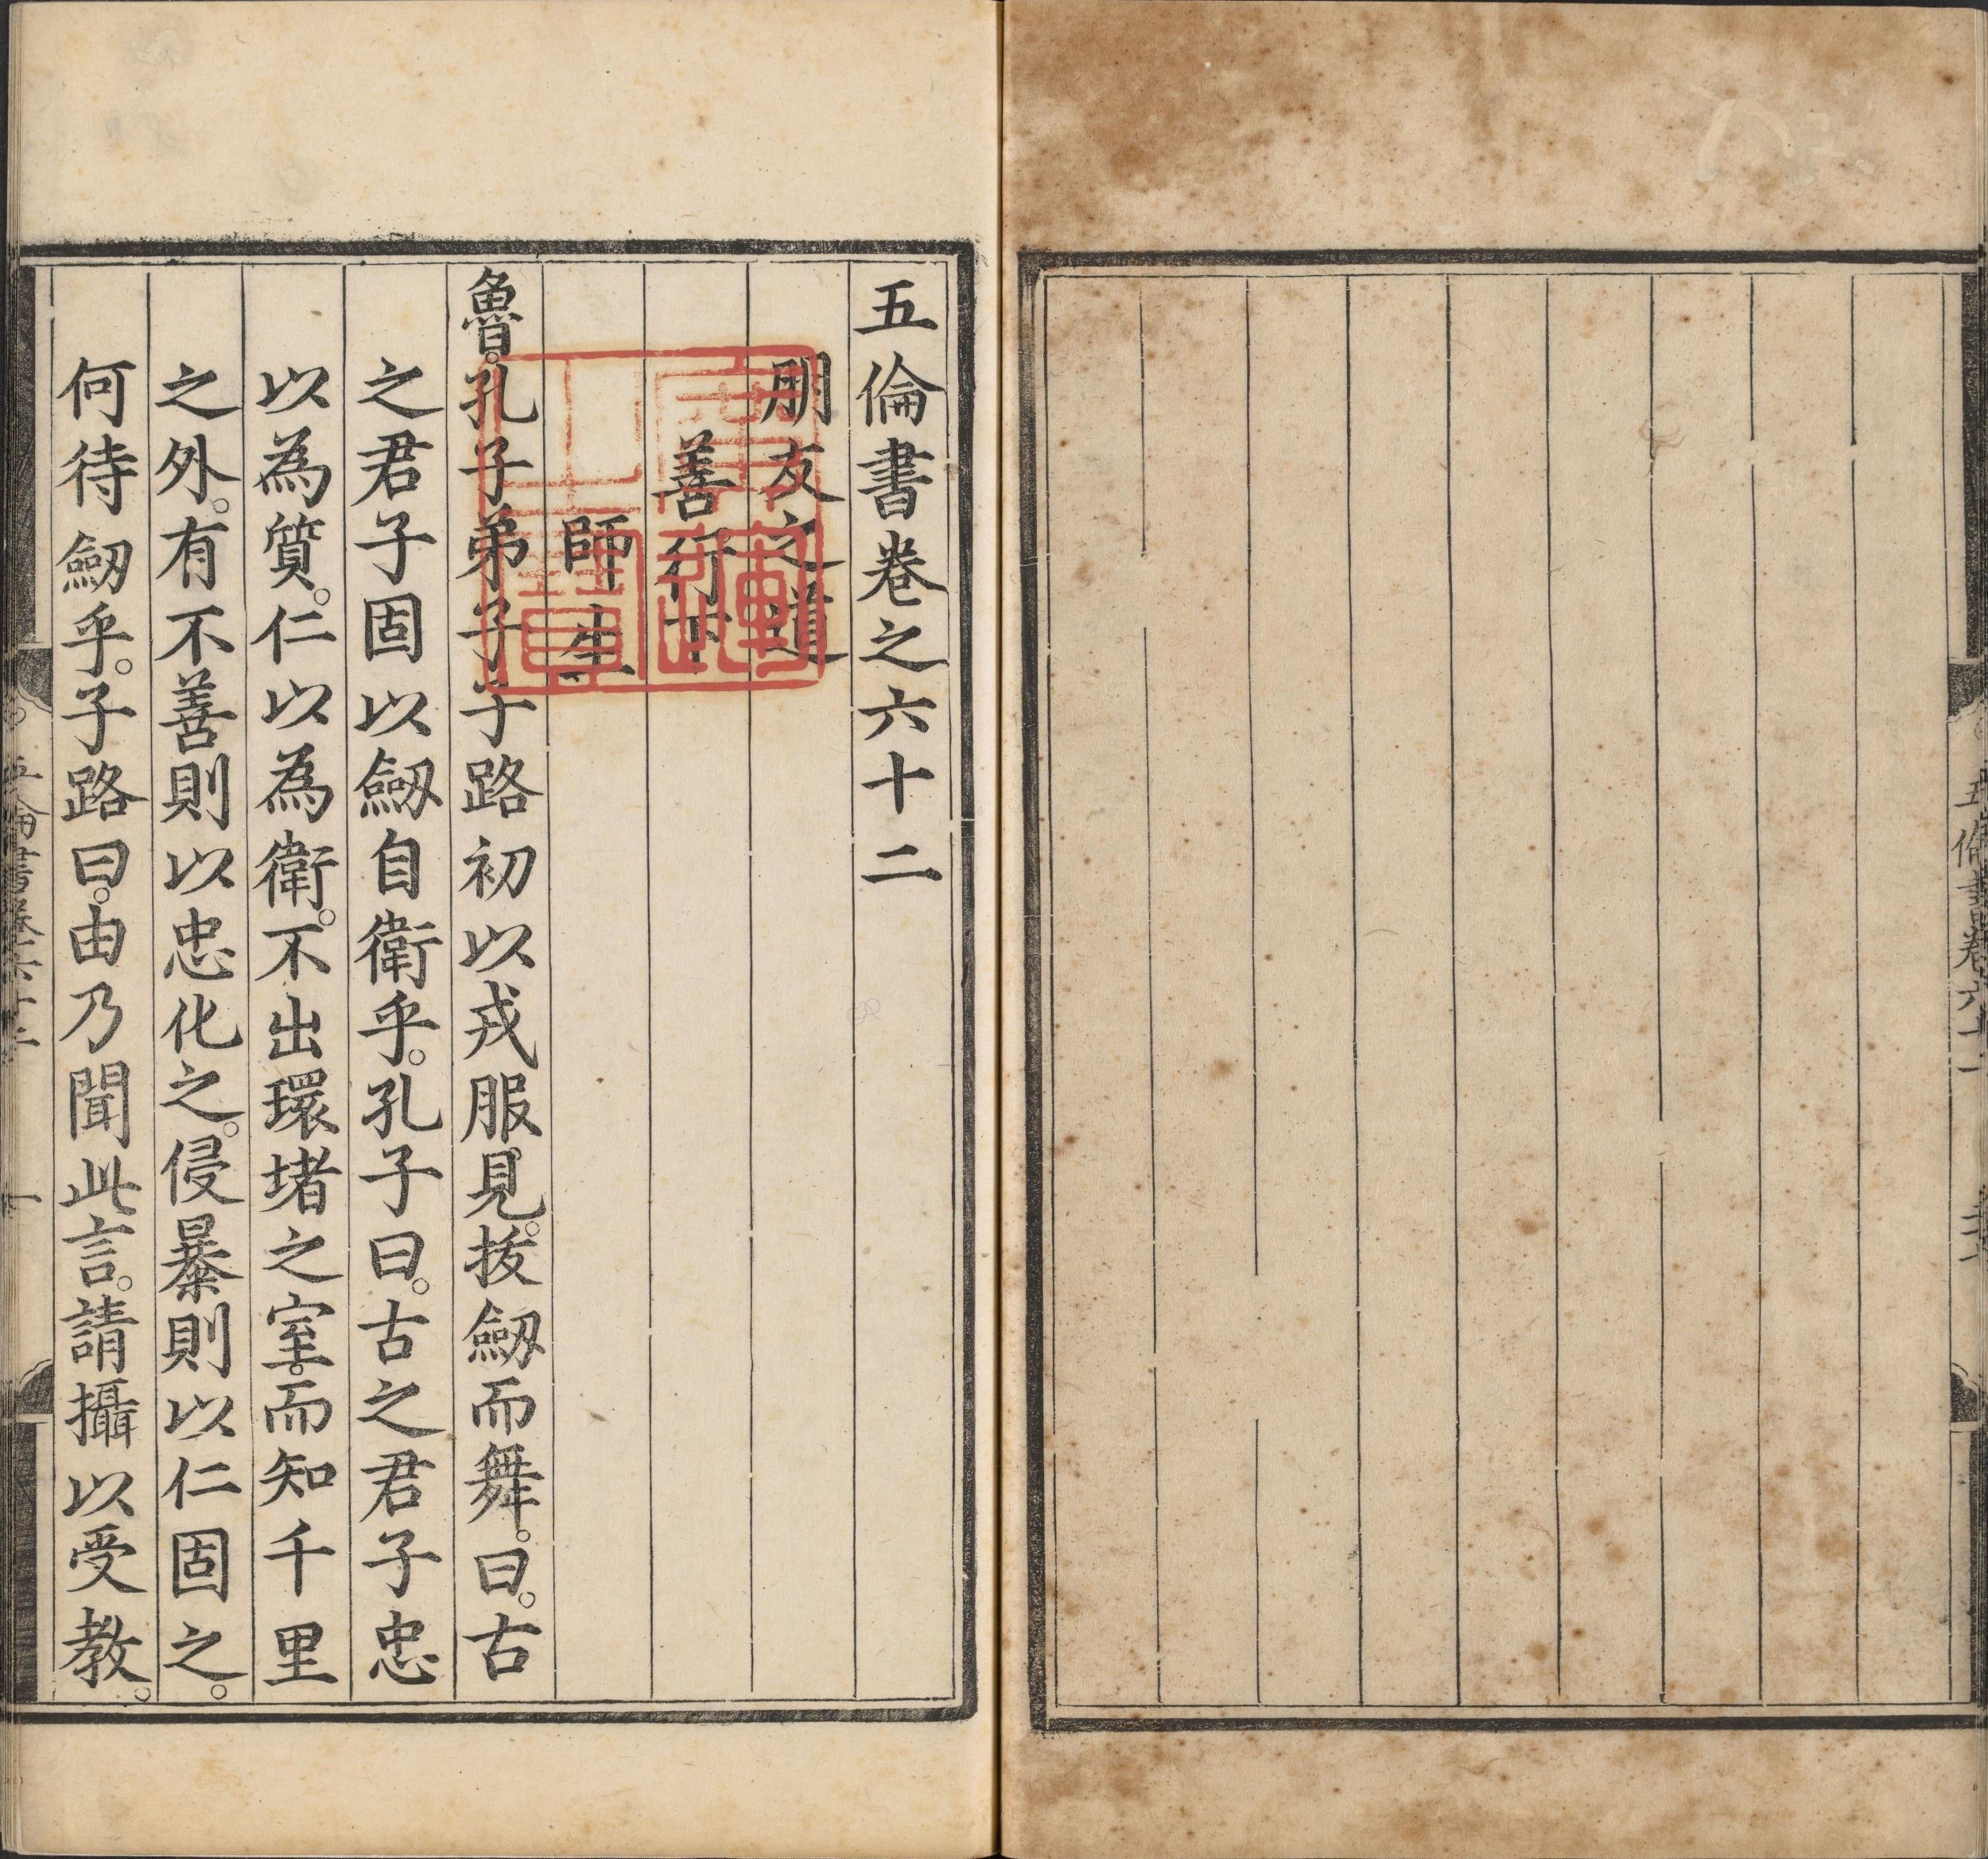 五倫書卷之六十二
朋友之道
善行下
師生
魯。孔子弟子子路初以戎服。見。拔劒而舞。曰。古
之君子固以劒自衛乎。孔子曰。古之君子忠
以為質。仁以為衛。不出環堵之室。而知千里
之外。有不善則以忠化之。侵暴則以仁固之。
何待劒乎。子路曰。由乃聞此言。請攝以受教。
五倫書卷六十二
一